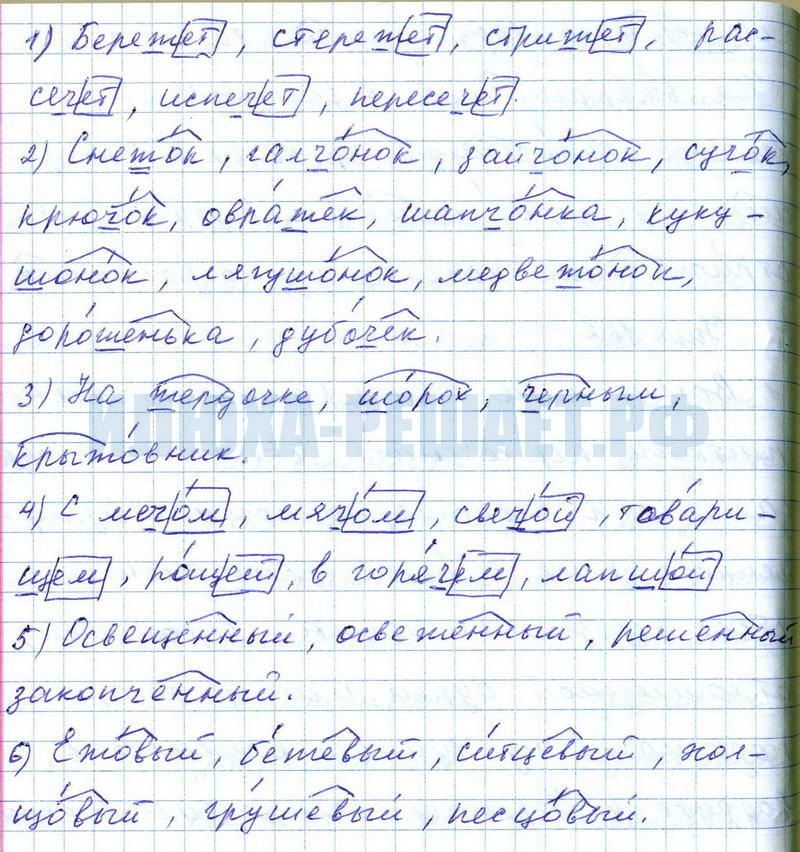 1) Бережет, стережет, стрижет, рас-
сечет, испечет, пересечет.
2) Снежок, галчонок, зайчонок, сучок,
крючок, овражек, шапчонка, куку-
шонок, лягушонок, медвежонок,
дороженька, дубочек.
3) На жердочке, шорох, черным,
ИЛЮХА-РЕШАЕТ.РФ
крыжовник.
4) С мечом, мячом, свечой, товари-
щем, рощей, в горячем, лапшой
5) Освещенный, освеженный, решенный
закопченный.
6) Ежовый, бежевый, ситцевый, хол-
щовый, грушевый, песцовый.